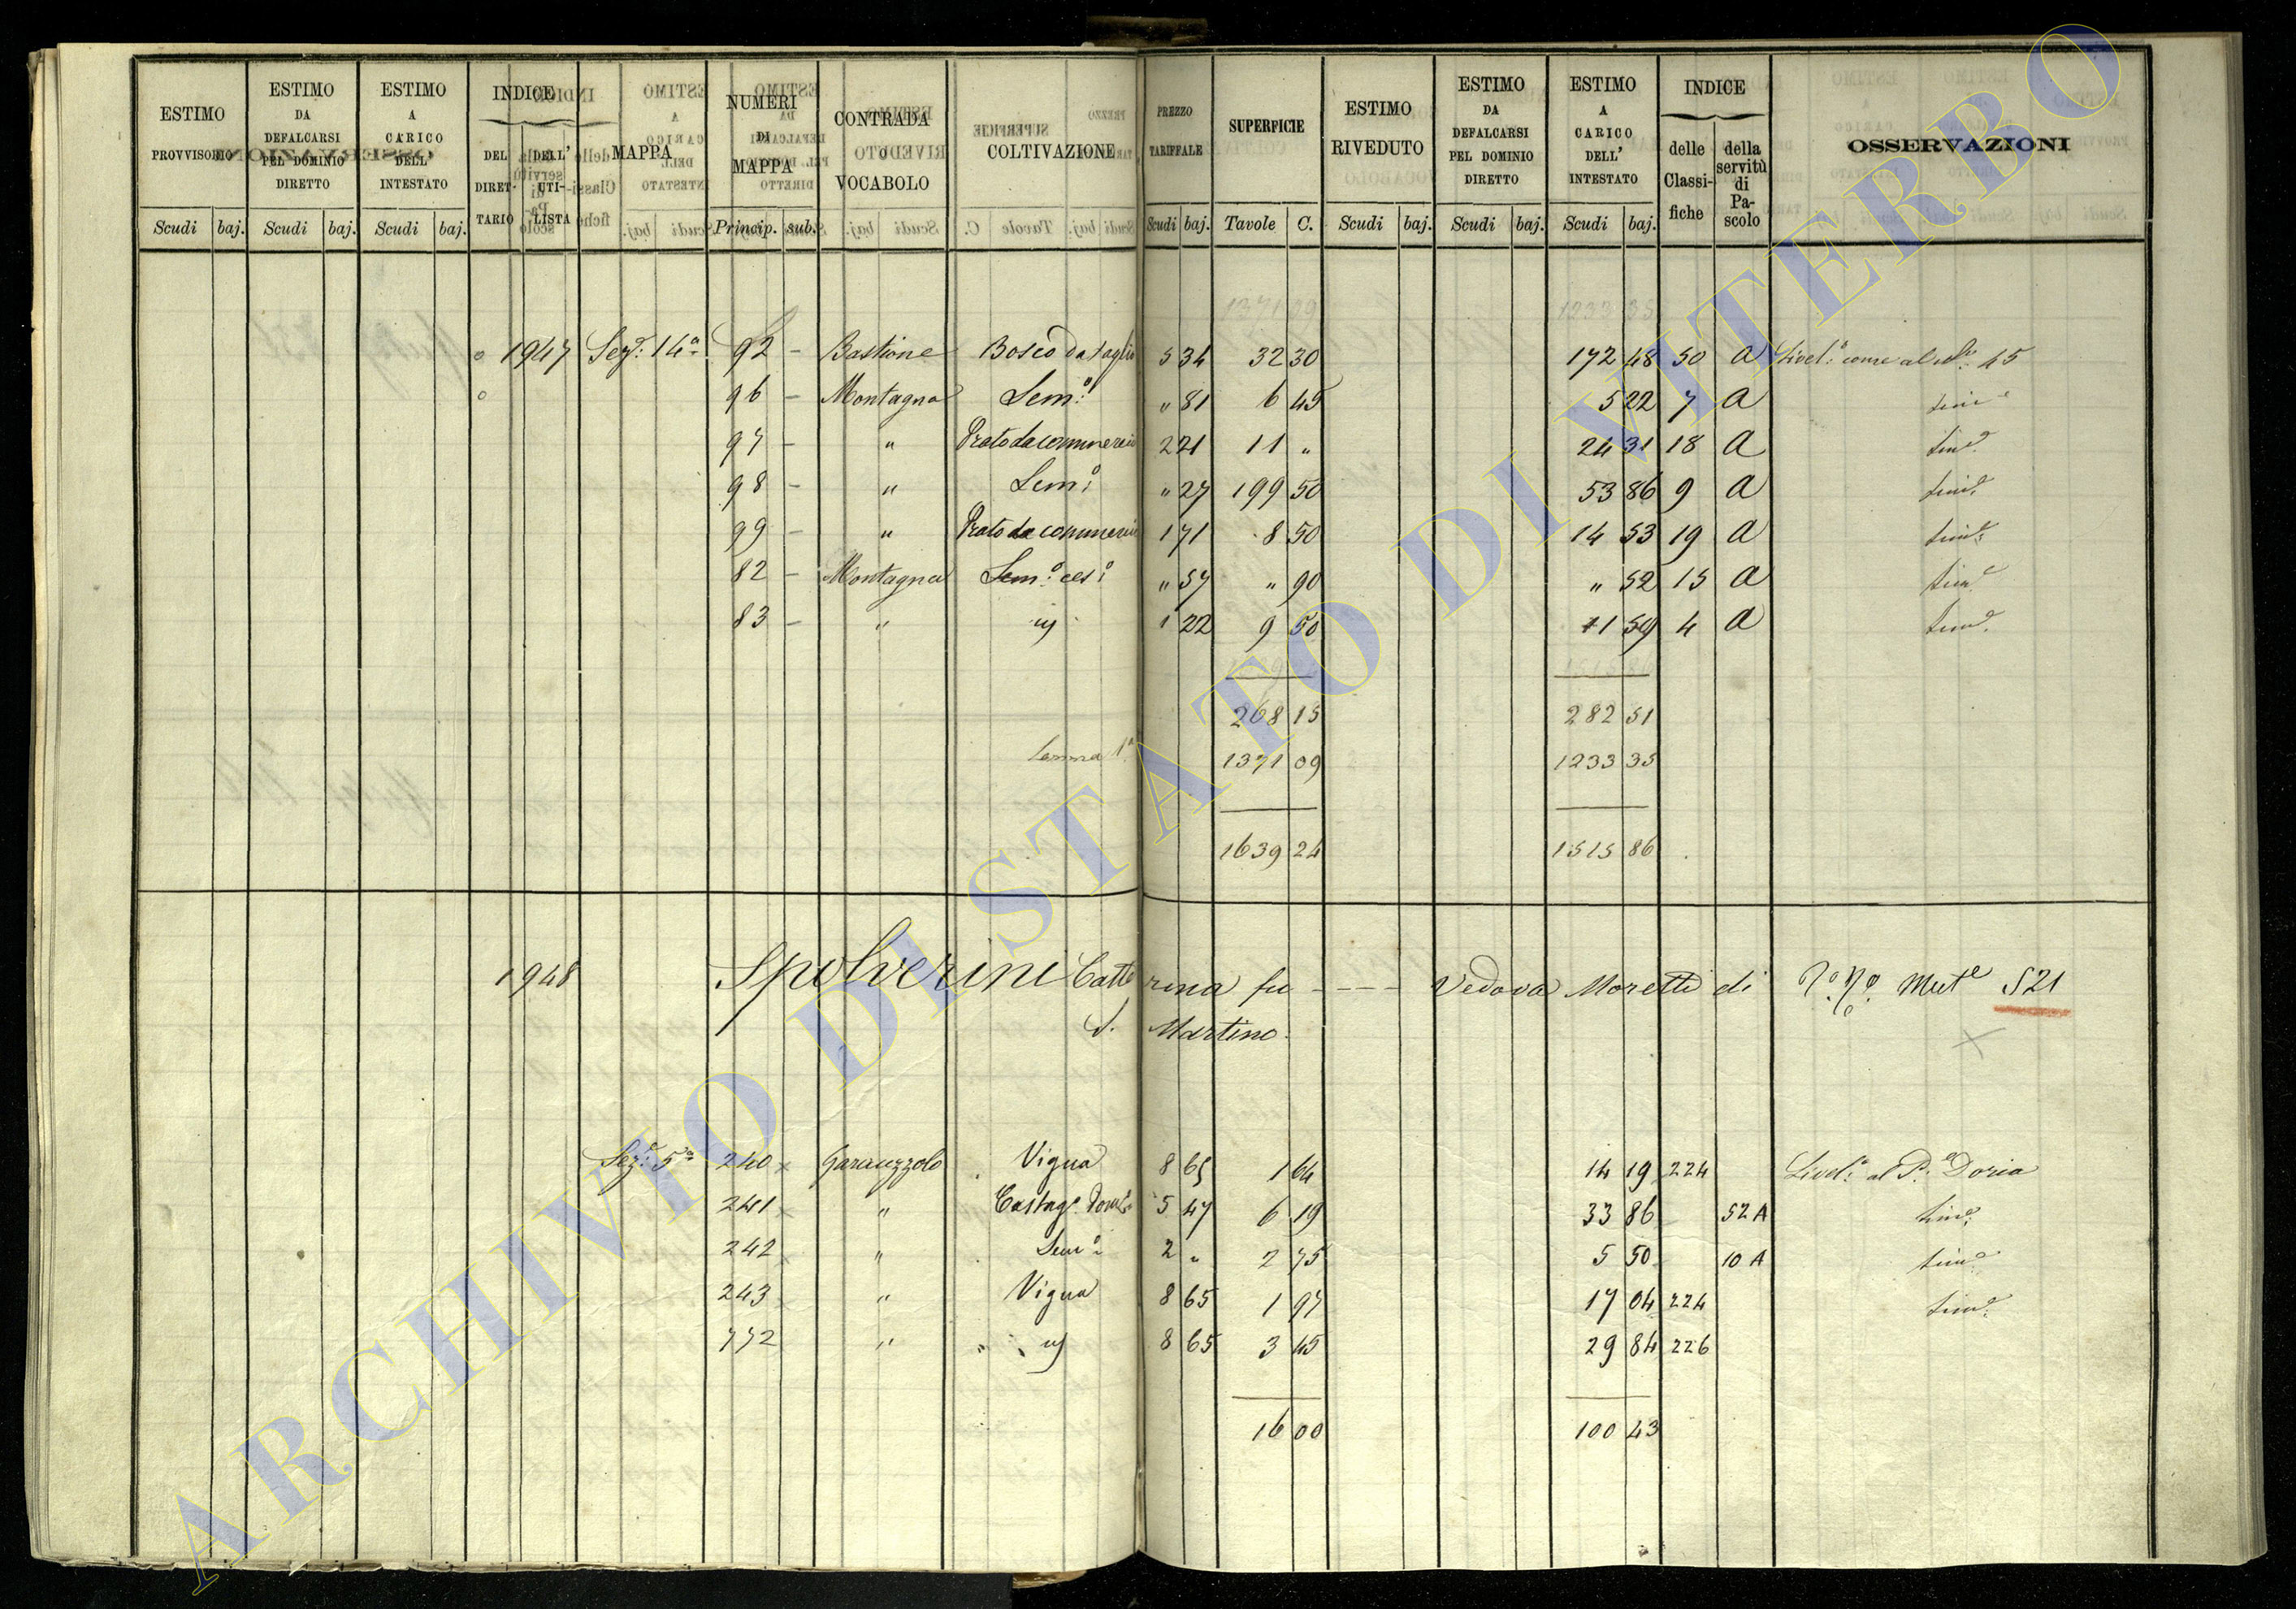 ESTIMO PROVVISORIO | ESTIMO DA DEFALCARSI PEL DOMINIO DIRETTO | ESTIMO A CARICO DELL' INTESTATO | INDICE DEL DIRETTARIO | DELL' UTILISTA | MAPPA | NUMERI DI MAPPA | CONTRADA O VOCABOLO | COLTIVAZIONE | PREZZO TARIFFALE | SUPERFICIE | ESTIMO RIVEDUTO | ESTIMO DA DEFALCARSI PEL DOMINIO DIRETTO | ESTIMO A CARICO DELL' INTESTATO | INDICE delle Classifiche | della servitù di Pascolo | OSSERVAZIONI
Scudi baj. Scudi baj. Scudi baj. Princip. sub. Scudi baj. Tavole C. Scudi baj. Scudi baj. Scudi baj.
1371 09 1233 35
1947 Sez.e 14a 92 – Bastione Bosco da taglio 5 34 32 30 172 48 50 a Livel.o come al No. 45
96 – Montagna Sem.o " 81 6 45 5 22 7 a sim.e
97 – " Prato da commercio 2 21 11 " 24 31 18 a sim.e
98 – " Sem.o " 27 199 50 53 86 9 a sim.e
99 – " Prato da commercio 1 71 8 50 14 53 19 a sim.e
82 – Montagna Sem.o ces.o " 57 " 90 " 52 15 a sim.e
83 – " " 1 22 9 50 11 59 4 a sim.e
1515 86
268 15 282 51
Somma 1a 1371 09 1233 35
1639 24 1515 86
1948 Spolverini Catterina fu - - - - Vedova Moretti di Mut.e 521
S. Martino
Sez.e 5a 240 x Garauzzolo Vigna 8 65 1 64 14 19 224 Livel.o al P.e Doria
241 x " Castag.o Dom.o 5 47 6 19 33 86 52 A sim.e
242 x " Sem.o 2 " 2 75 5 50 10 A sim.e
243 x " Vigna 8 65 1 97 17 04 224 sim.e
772 " " 8 65 3 45 29 84 226
16 00 100 43
ARCHIVIO DI STATO DI VITERBO